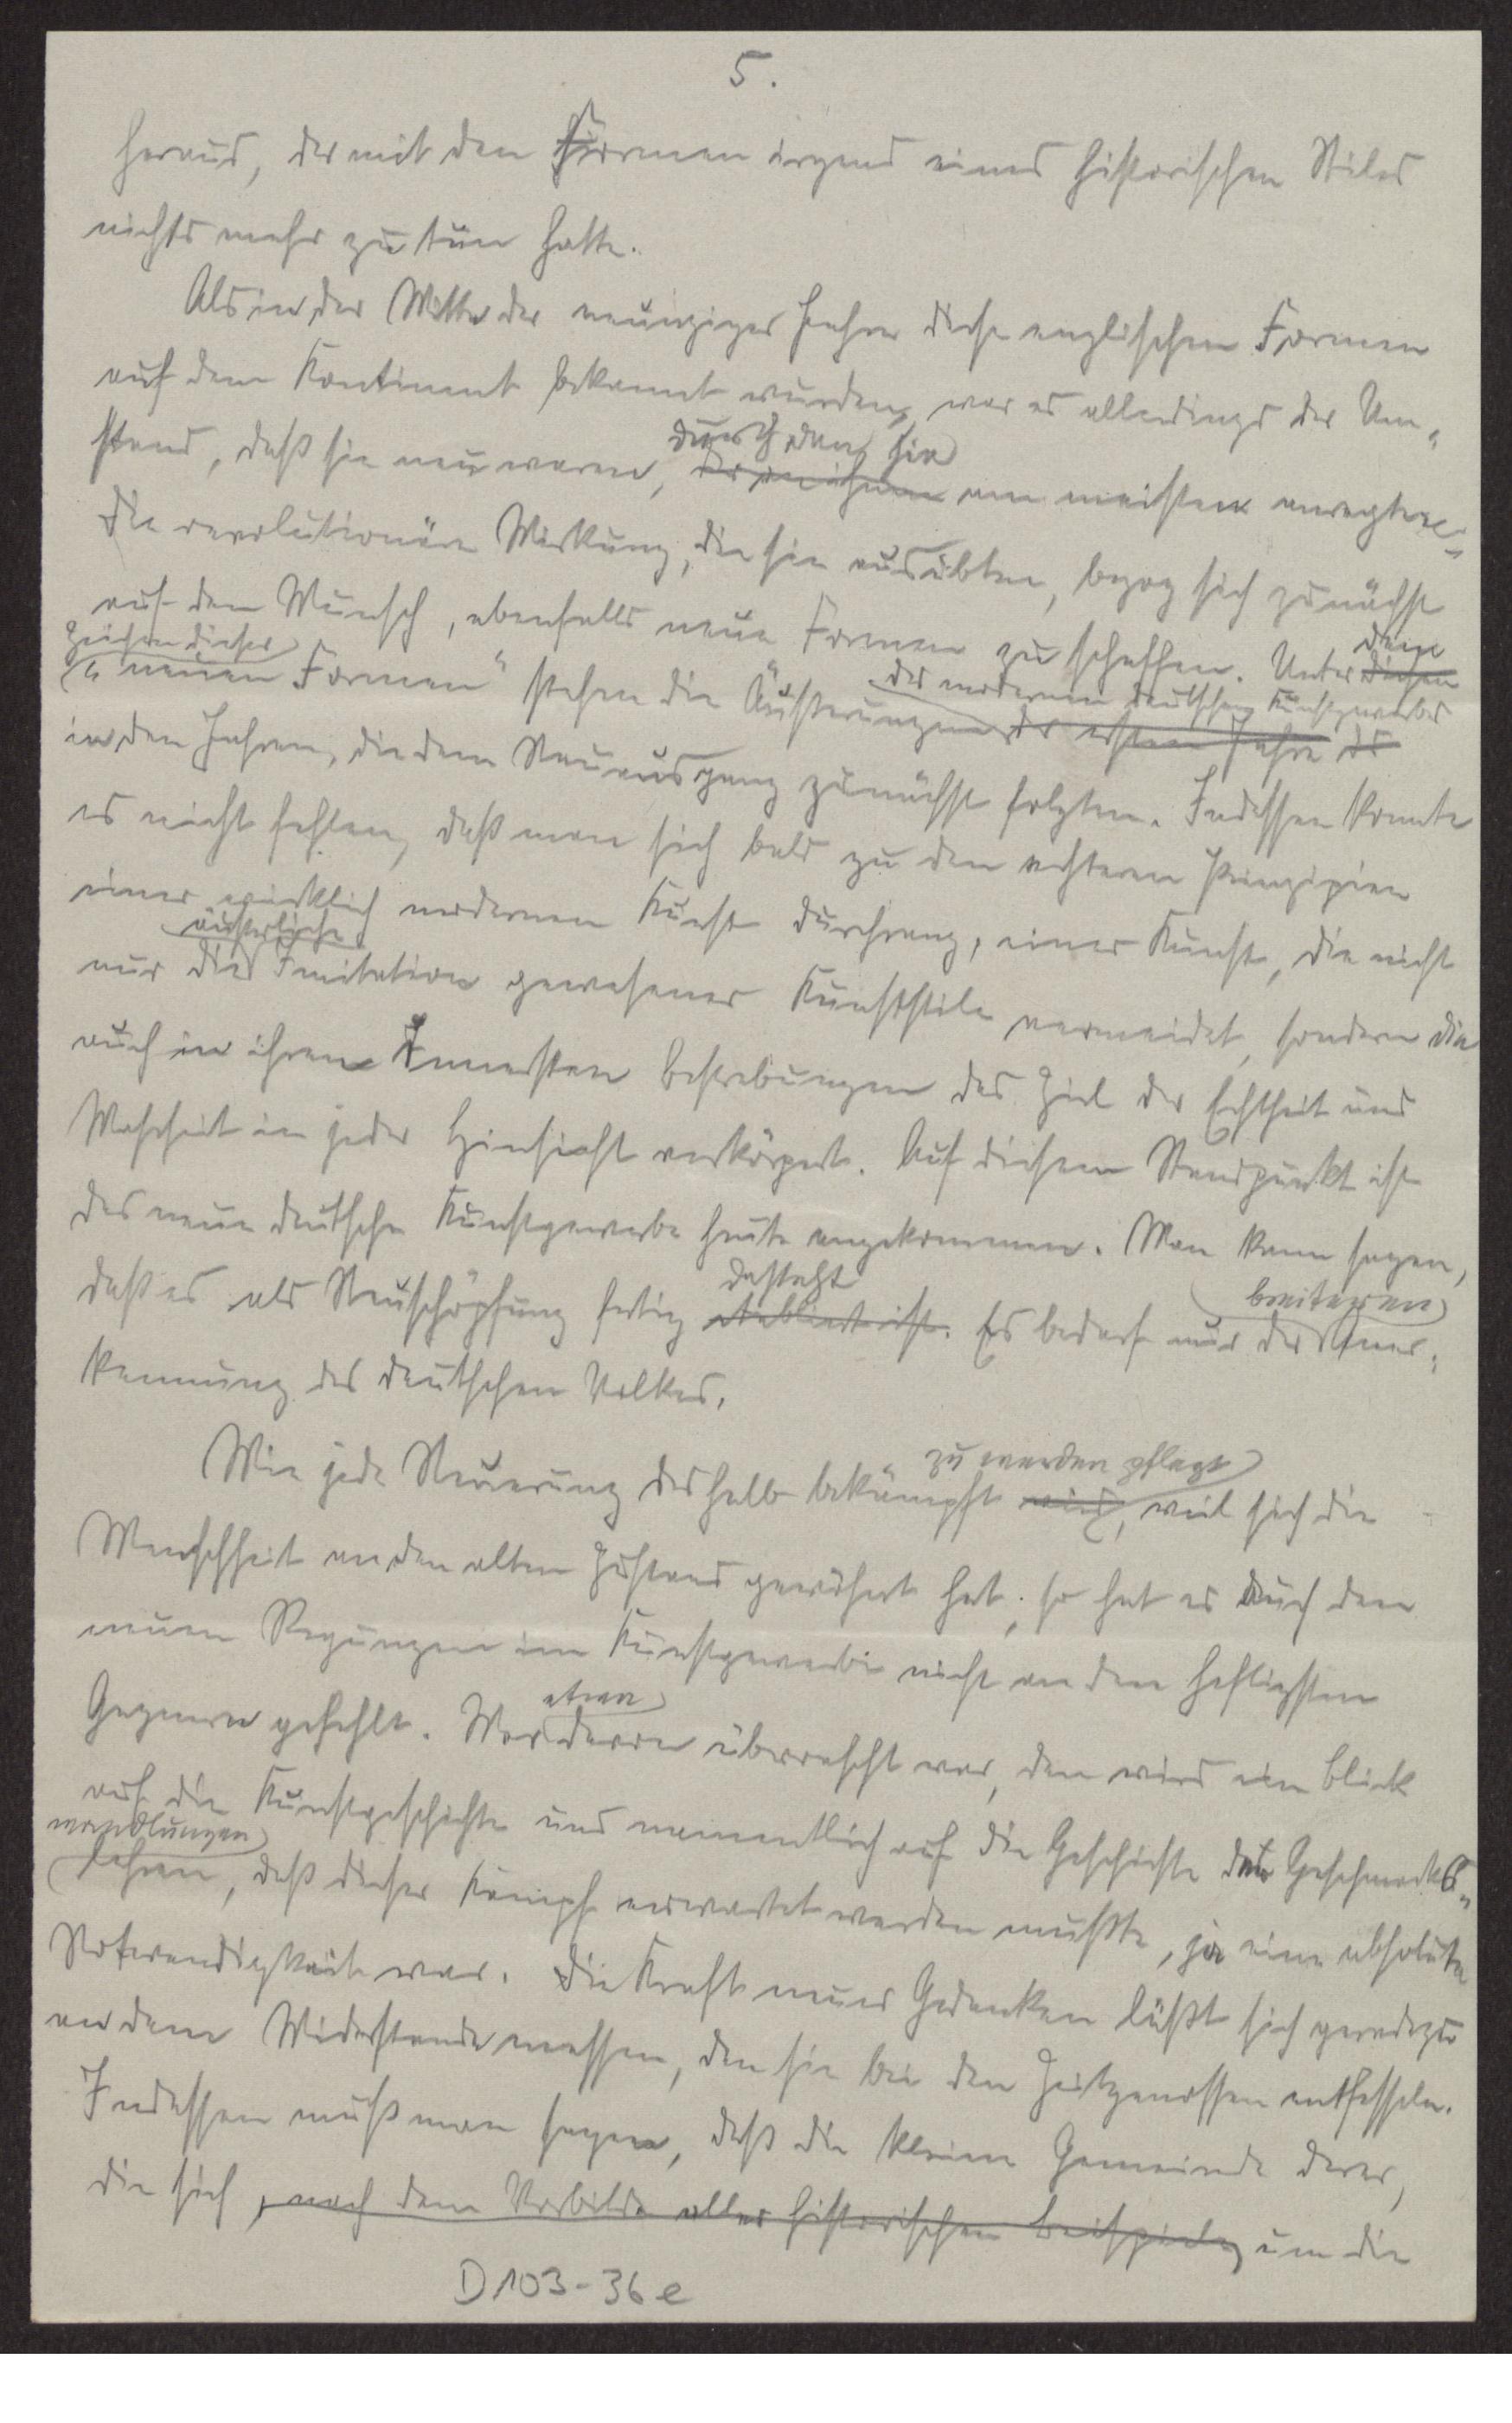 5.
heraus, der mit den Formen irgend eines historischen Stiles
nichts mehr zu tun hatte.
Als in der Mitte der neunziger Jahre diese englischen Formen
auf dem Kontinent bekannt wurden, war es allerdings der Um-
durch den sie
stand, daß sie neu waren, der an ihnen am meisten anregte
Die revolutionäre Wirkung, die sie ausübten, bezog sich zunächst
auf den Wunsch, ebenfalls neue Formen zu schaffen. Unter diesen
dem
Zeichen dieser
"neuen Formen" stehen die Äußerungen der ersten Jahre des
des modernen deutschen Kunstgewerbes
in den Jahren, die dem Neuausgang zunächst folgten. Indessen konnte
es nicht fehlen, daß man sich bald zu den echteren Prinzipien
einer wirklich modernen Kunst durchrang, einer Kunst, die nicht
äußerliche
nur die Imitation gewesener Kunststile vermeidet, sondern die
auch in ihren Innersten Bestrebungen das Ziel der Echtheit und
Wahrheit in jeder Hinsicht verkörpert. Auf diesem Standpunkt ist
das neue deutsche Kunstgewerbe heute angekommen. Man kann sagen,
dasteht
breiteren
daß es als Neuschöpfung fertig etabliert ist. Es bedarf nur der Aner-
kennung des deutschen Volkes.
zu werden pflegt
Wie jede Neuerung deshalb bekämpft wird, weil sich die
Menschheit an den alten Zustand gewöhnt hat, so hat es auch den
neuen Regungen im Kunstgewerbe nicht an den heftigsten
etwa
Gegnern gefehlt. Wer davon überrascht war, den wird ein Blick
auf die Kunstgeschichte und namentlich auf die Geschichte der Geschmacks-
wandlungen
lehren, daß dieser Kampf erwartet werden mußte, ja eine absolute
Notwendigkeit war. Die Kraft neuer Gedanken läßt sich geradezu
an dem Widerstande messen, den sie bei den Zeitgenossen entfesseln.
Indessen muß man sagen, daß die kleine Gemeinde derer,
die sich, nach dem Vorbilde aller historischen Beispiele, um die
D 103-36 e